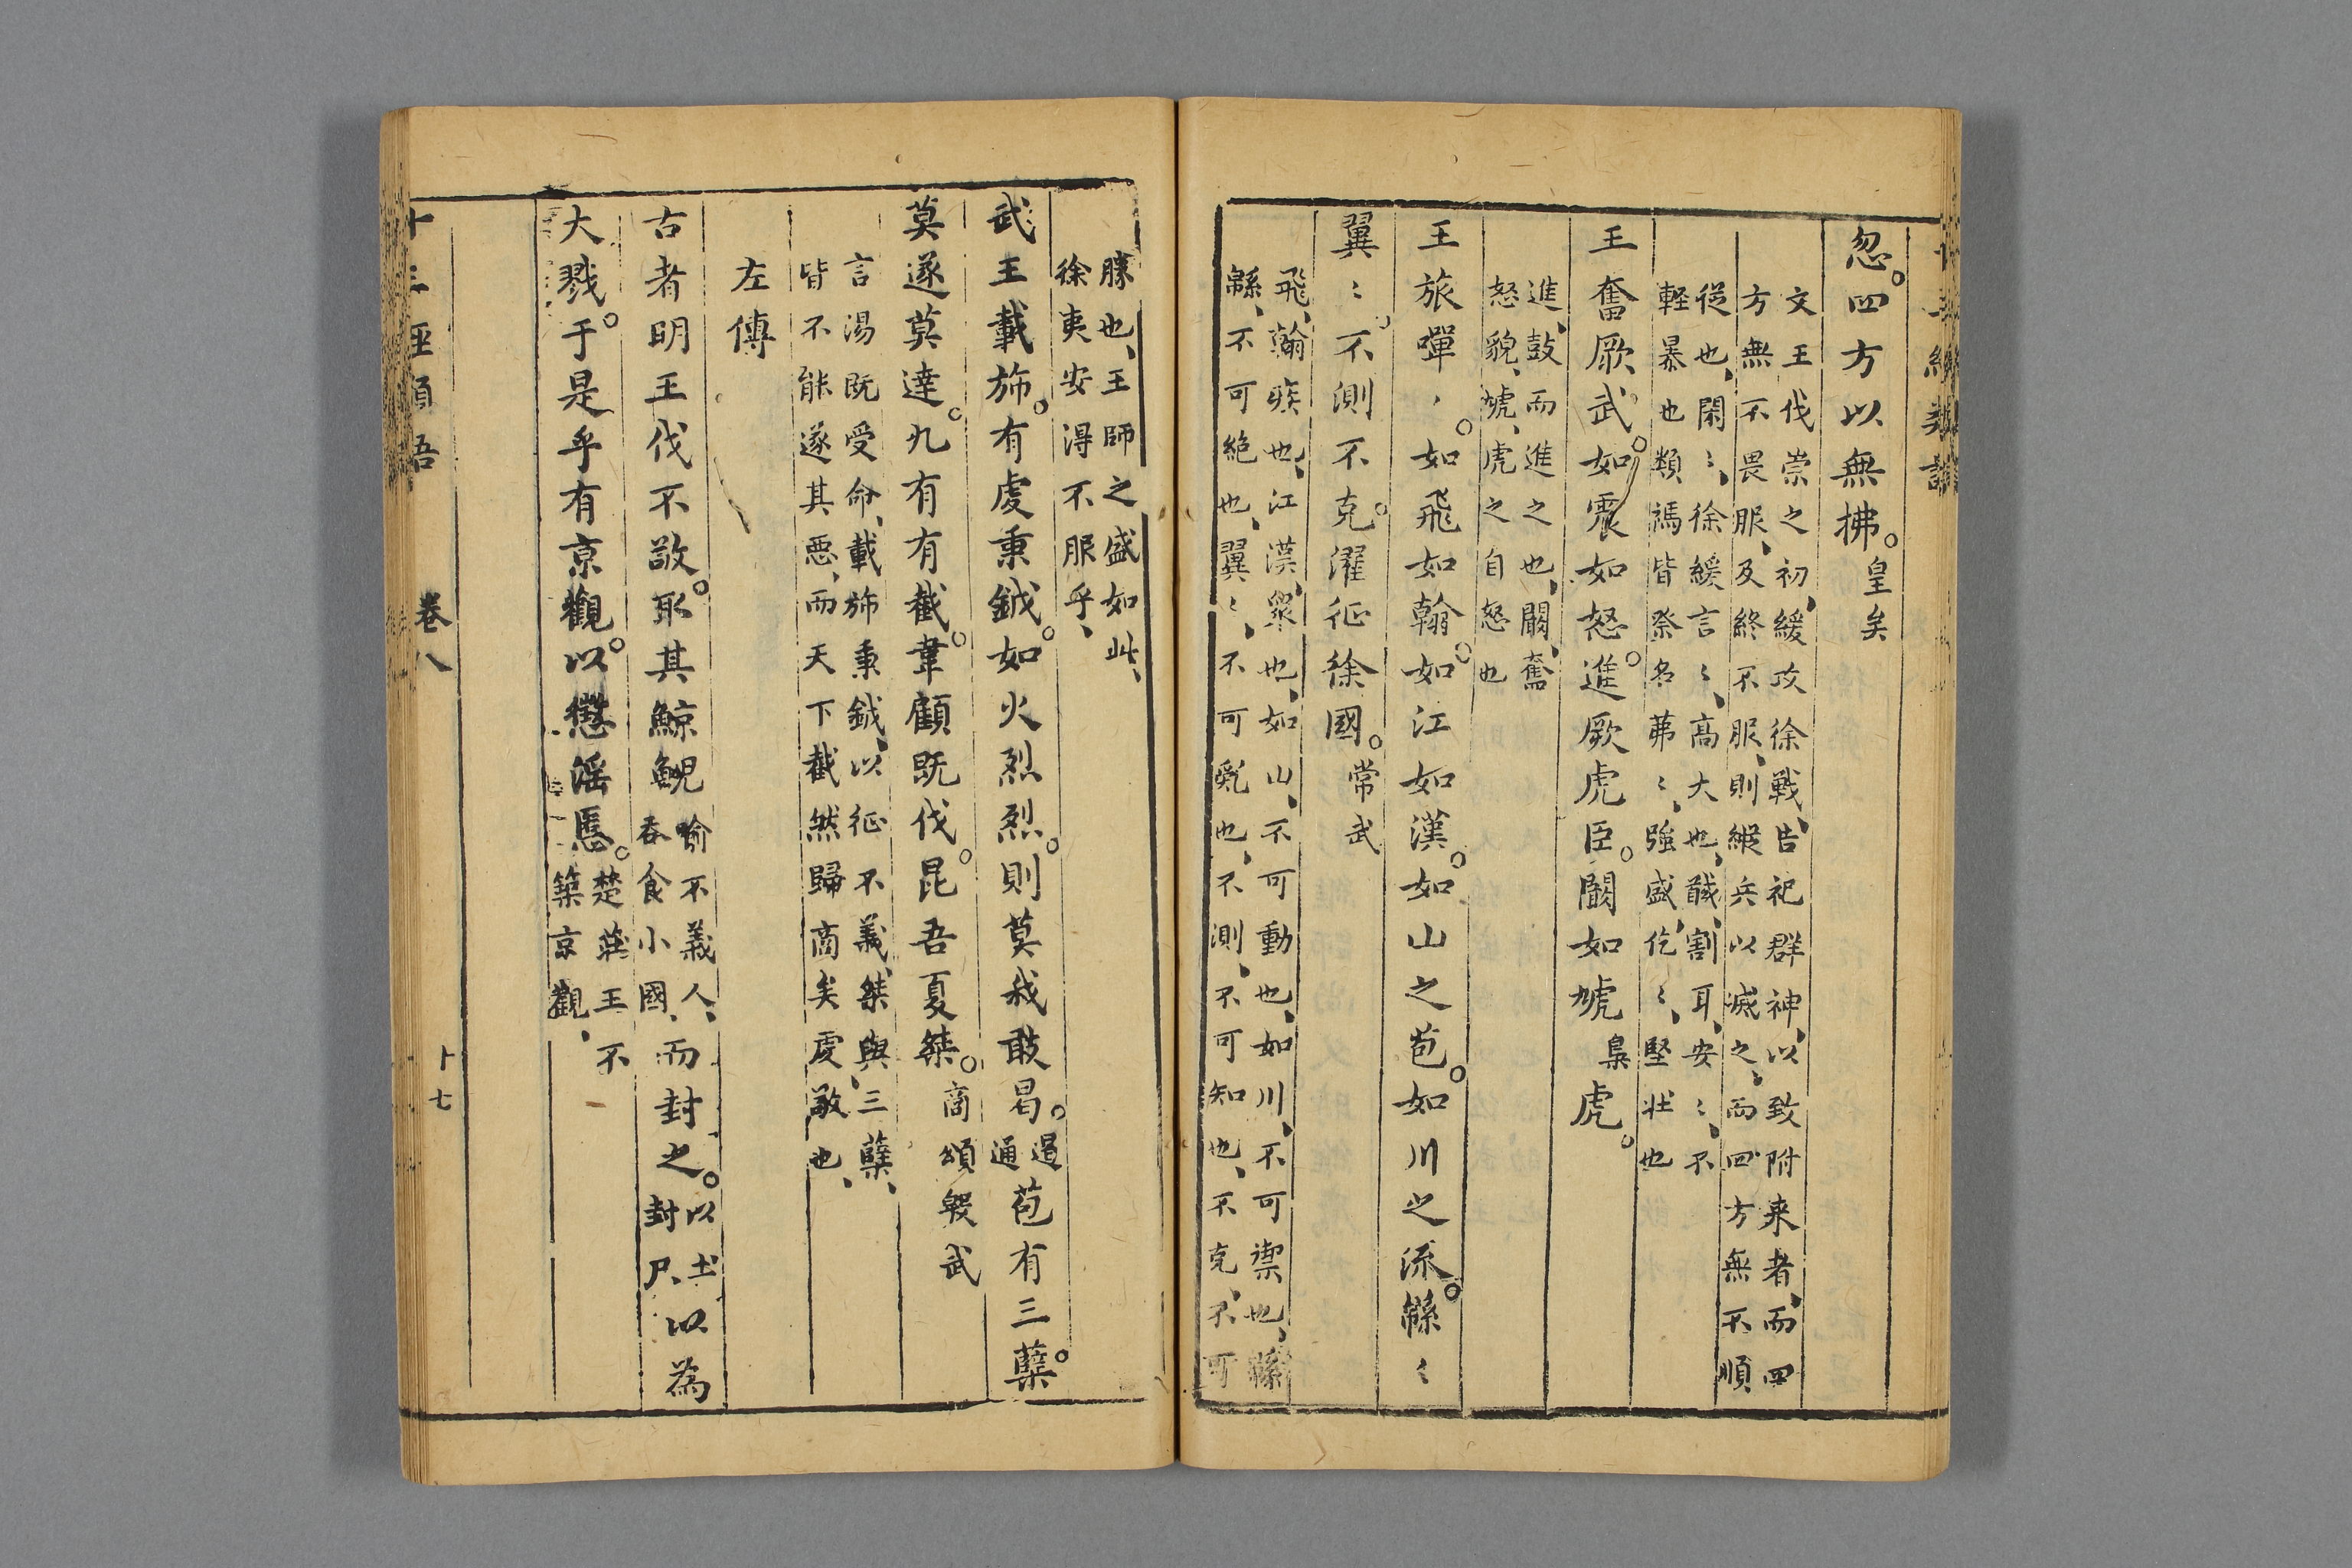 忽。四方以無拂。皇矣
文王伐崇之初、緩攻徐戰、告祀群神、以致附来者、而四
方無不畏服、及終不服、則縱兵以滅之、而四方無不順
從也、閑〻、徐緩言〻、高大也、馘、割耳、安〻、不
軽暴也類禡皆祭名茀〻、強盛仡〻、堅壮也
王奮厥武。如震如怒。進厥虎臣。闞如虓梟虎。
進、鼓而進之也、闞、奮
怒貌、虓、虎之自怒也
王旅嘽〻。如飛如翰。如江如漢。如山之苞。如川之流。緜〻
翼〻。不測不克。濯征徐國。常武
飛、翰疾也、江漢、衆也、如山、不可動也、如川、不可禦也、緜
緜、不可絶也、翼〻、不可乱也、不測、不可知也、不克、不可
勝也、王師之盛如此、
徐夷安淂不服乎、
武王載斾。有虔秉鉞。如火烈烈。則莫我敢曷。遏通苞有三蘖。
莫遂莫達。九有有截。韋顧既伐。昆吾夏桀。商頌殷武
言湯既受命、載斾秉鉞、以征不義、桀與三蘖、
皆不能遂其惡、而天下截然歸商矣虔敬也、
左傳
古者明王伐不敬。取其鯨鯢喻不義人、吞食小國、而封之。以土封尸、以為
大戮。于是乎有京觀。以懲淫慝。楚莊王不築京觀、
卷八
十七